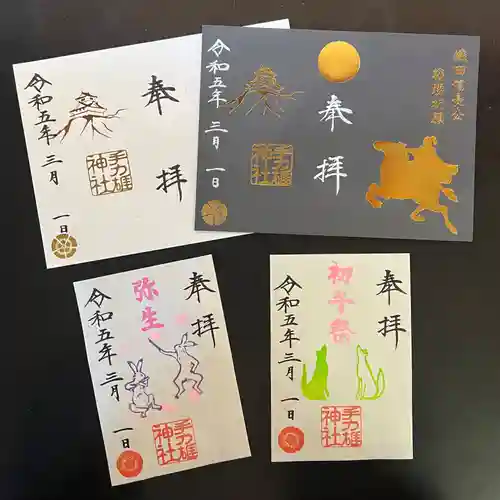 奉拝
手力雄
神社
令和五年 三月 一日
織田信長公
戦勝祈願
奉拝
手力雄
神社
令和五年 三月 一日
奉拝
弥生
手力雄
神社
令和五年 三月 一日
奉拝
初午祭
手力雄
神社
令和五年 三月 一日